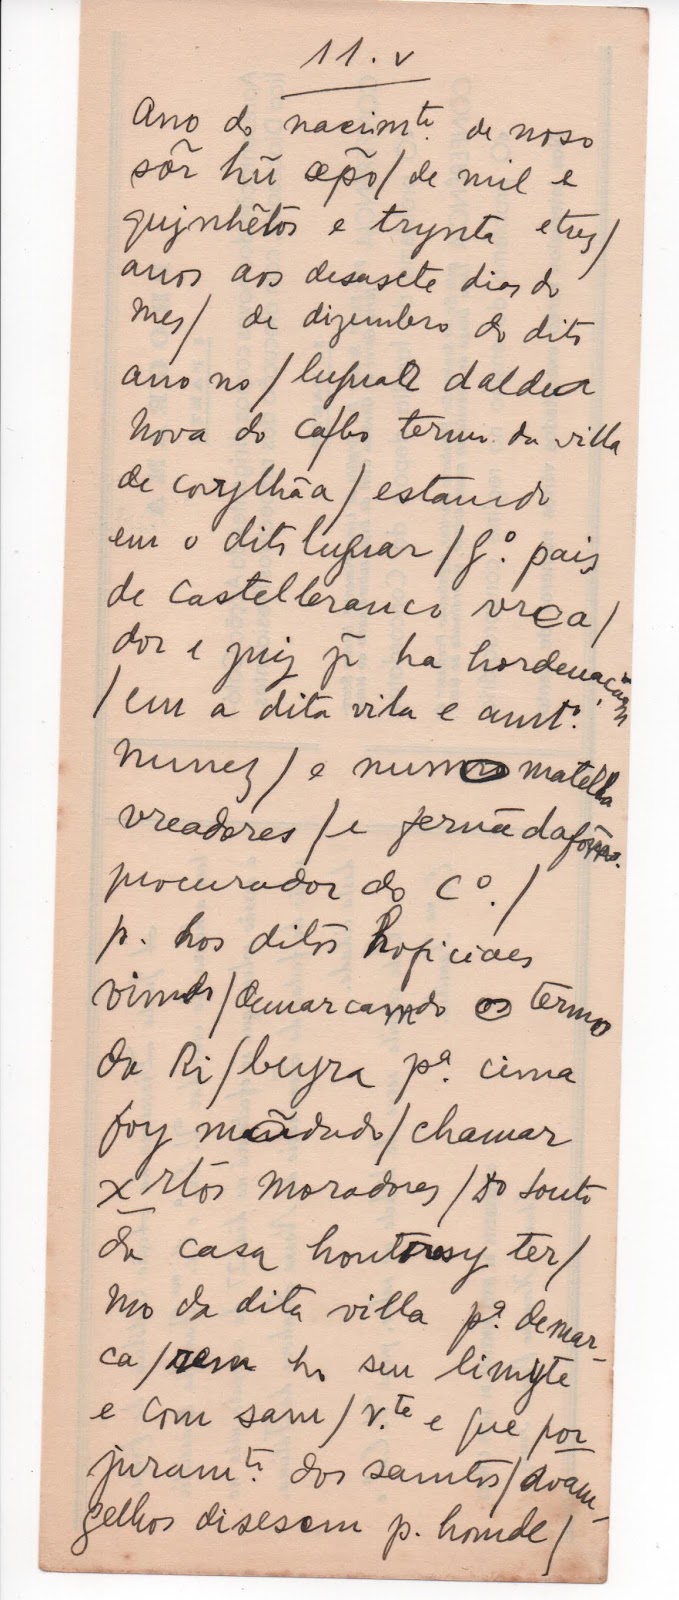 11. v
Ano do nacimte. de noso
sõr hũ xpõ / de mil e
quynhẽtos e trynta e tres /
anos aos desasete dias do
mes / de dizembro do dito
ano no / luguar daldea
nova do cabo termo da villa
de covylhãa / estamdo
em o dito luguar / gº. paiz
de castelbranco vrea /
dor e juiz p̃ ha hordenaçam
/ em a dita vila e amtº.
nunez / e nuno matella
vreadores / e fernãdafõso.
procurador do Cº. /
p. hos ditos hoficiaes
vimdo / demarcamdo os termos
da Ri / beyra pª. cima
foy mãdado / chamar
x rtos moradores / do souto
da casa houtrosy ter /
mo da dita villa pª. demar-
ca / rem ho seu limyte
e com sam / v.te e que por
juramte. dos samtos / avam-
gelhos disesem p. homde /